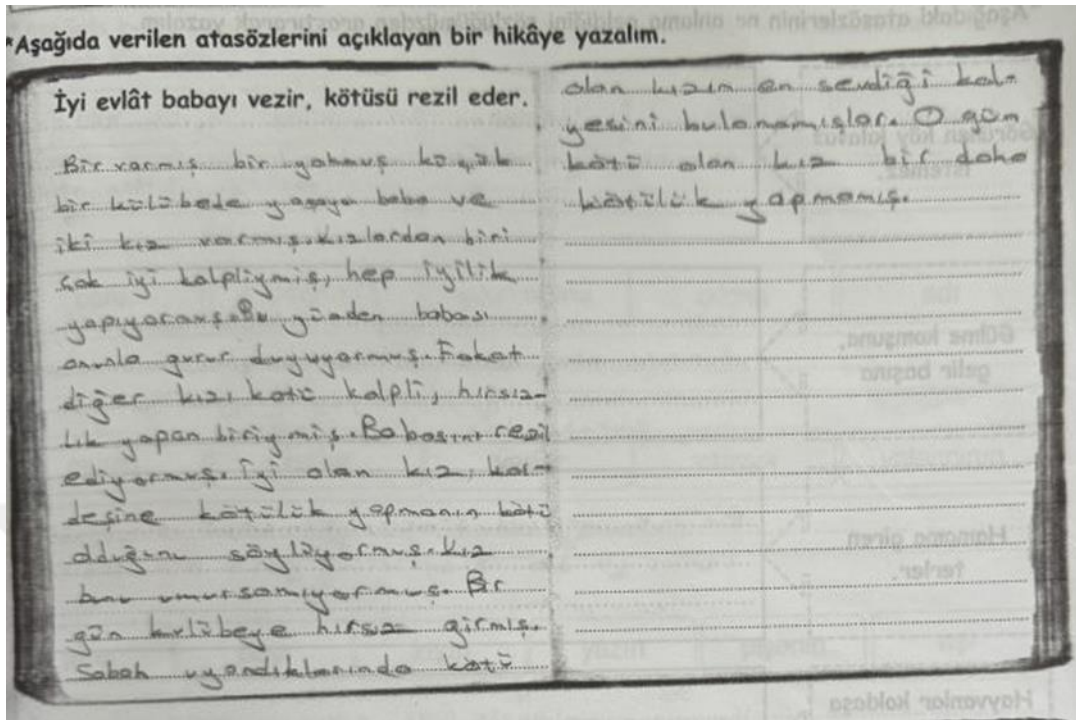 *Aşağıda verilen atasözlerini açıklayan bir hikâye yazalım.
İyi evlât babayı vezir, kötüsü rezil eder.
Bir varmış bir yokmuş küçük
bir kulübede yaşayan baba ve
iki kız varmış. Kızlardan biri
çok iyi kalpliymiş, hep iyilik
yapıyormuş. Bu yüzden babası
onunla gurur duyuyormuş. Fakat
diğer kızı kötü kalpli, hırsız-
lık yapan biriymiş. Babasını rezil
ediyormuş. İyi olan kız, kar-
deşine kötülük yapmanın kötü
olduğunu söylüyormuş. Kız
bunu umursamıyormuş. Bir
gün kulübeye hırsız girmiş.
Sabah uyandıklarında kötü
olan kızın en sevdiği kol-
yesini bulamamışlar. O gün
kötü olan kız bir daha
kötülük yapmamış.